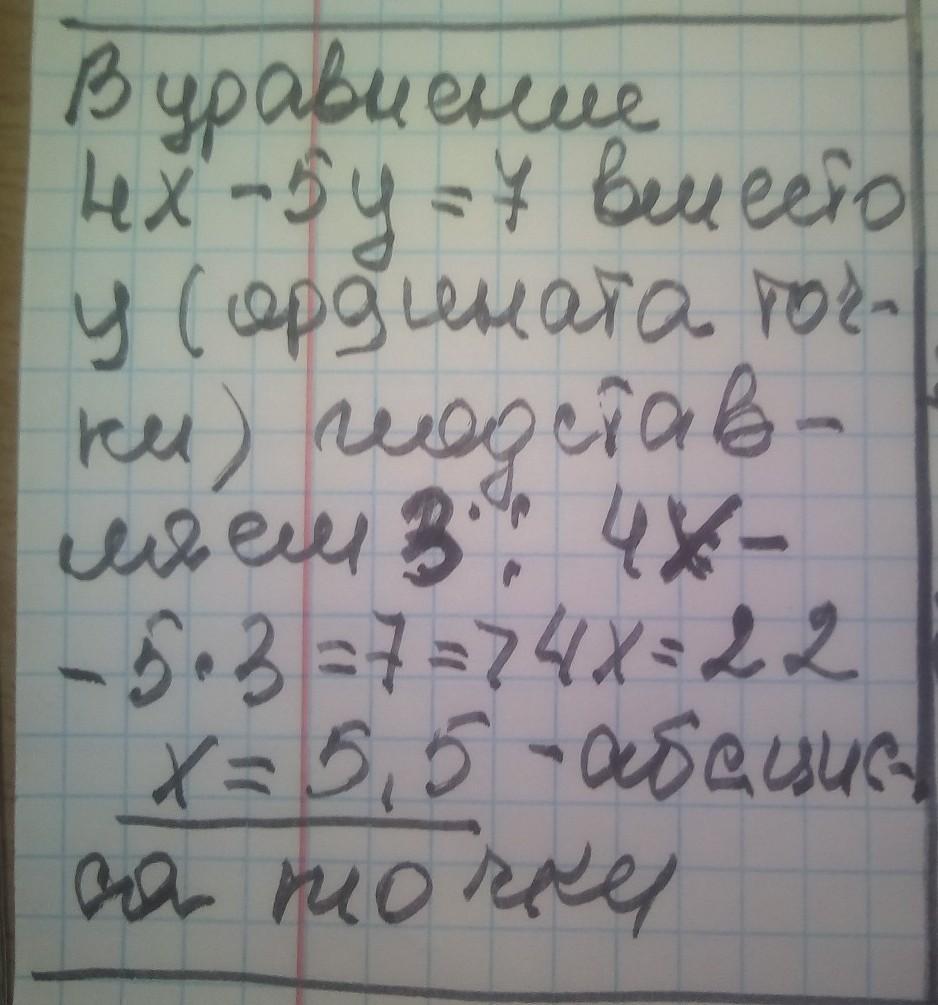 В уравнение
4x - 5y = 7 вместо
y (ордината точ-
ки) подстав-
ляем 3: 4x -
- 5 · 3 = 7 => 4x = 22
x = 5,5 - абсцис-
са точки